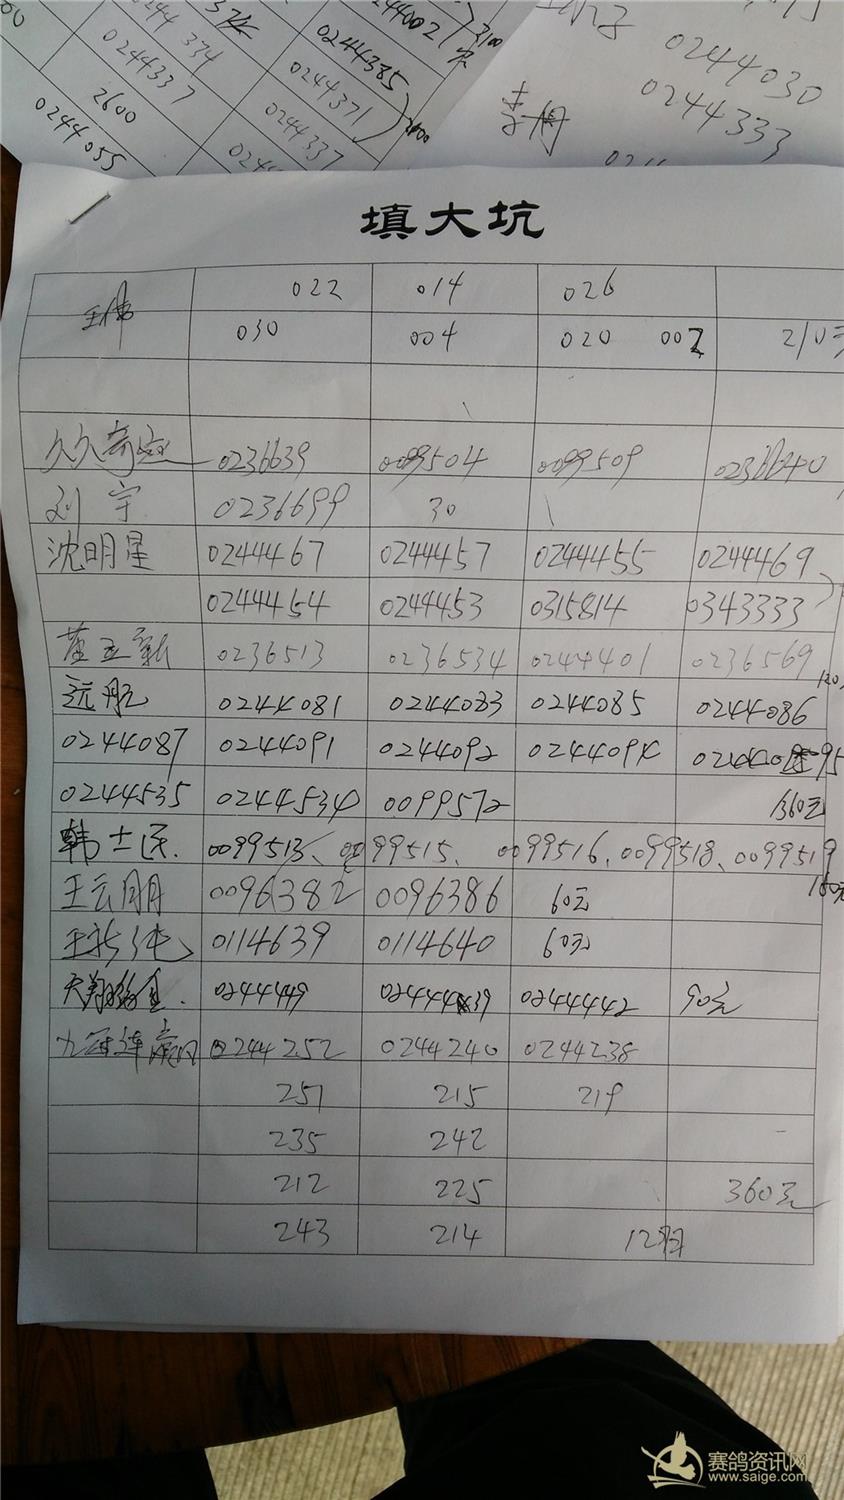 0244002
2100
0244 334
0244385
0244337
0244371
2600
0244337
0244055
0244030
0244333
填大坑
王伟 022 014 026
030 004 020 002 210元
久久奇迹 0236639 0099504 0099509
刘宇 0236699 30
沈明星 0244467 0244457 0244455 0244469
0244454 0244453 0315814 0343333
0236513 0236534 0244401 0236569
120
远航 0244081 0244083 0244085 0244086
0244087 0244091 0244092 024409 95
0244535 0244534 0099572 360元
韩士医. 0099513、0099515、0099516、0099518、0099519
150元
王云朋 0096382 0096386 60元
0114639 0114640 60元
0244449 0244439 0244442 90元
九冠连赢 0244252 0244240 0244238
251 215 219
235 242
212 225 360元
243 214 12羽
赛鸽资讯网
www.saige.com